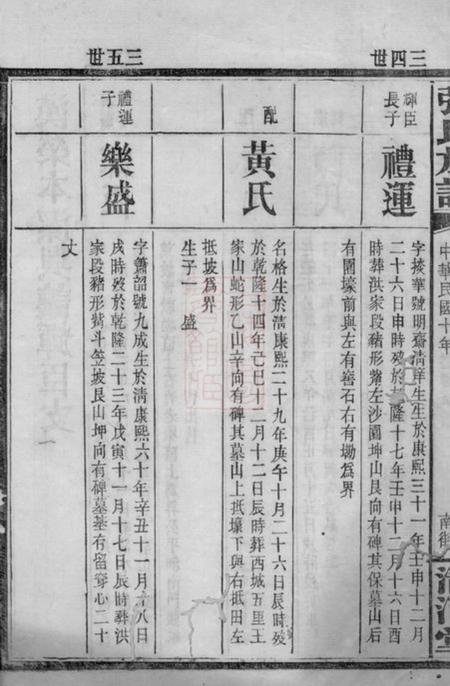 張氏族譜
中華民國十年
南街
清河堂
三四世
輝臣
長子
禮運
字掞華號明齋清庠生生於康熙三十一年壬申十二月
二十六日申時歿於乾隆十七年壬申十二月十六日酉
時葬洪家段豬形嘴左沙園坤山艮向有碑其保墓山后
有圍壕前與左有窨石右有坳爲界
配
黃氏
名格生於清康熙二十九年庚午十月二十六日辰時歿
於乾隆十四年己巳十二月十二日辰時葬西城五里王
家山蛇形乙山辛向有碑其墓山上抵壤下與右抵田左
抵坡爲界
生子一 盛
三五世
禮運
子
樂盛
字蕭韶號九成生於清康熙六十年辛丑十一月十八日
戌時歿於乾隆二十三年戊寅十一月十七日辰時葬洪
家段豬形斗笠坡艮山坤向有碑墓基有留穿心二十
丈